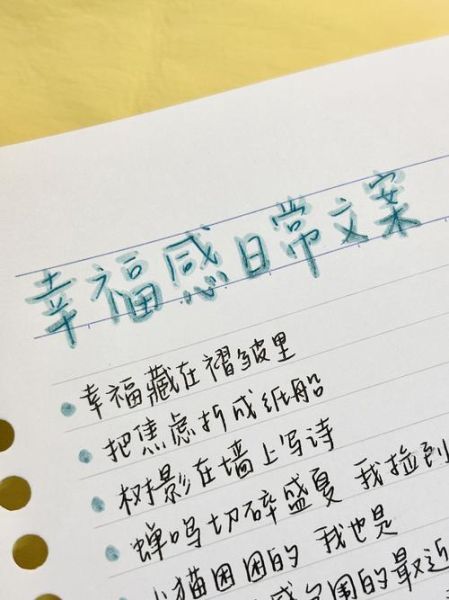 幸福感日常文案
幸福藏在褶皱里
把焦虑折成纸船
树影在墙上写诗
蝉鸣切碎盛夏 我捡到
小猫困困的 我也是
感包围的最近